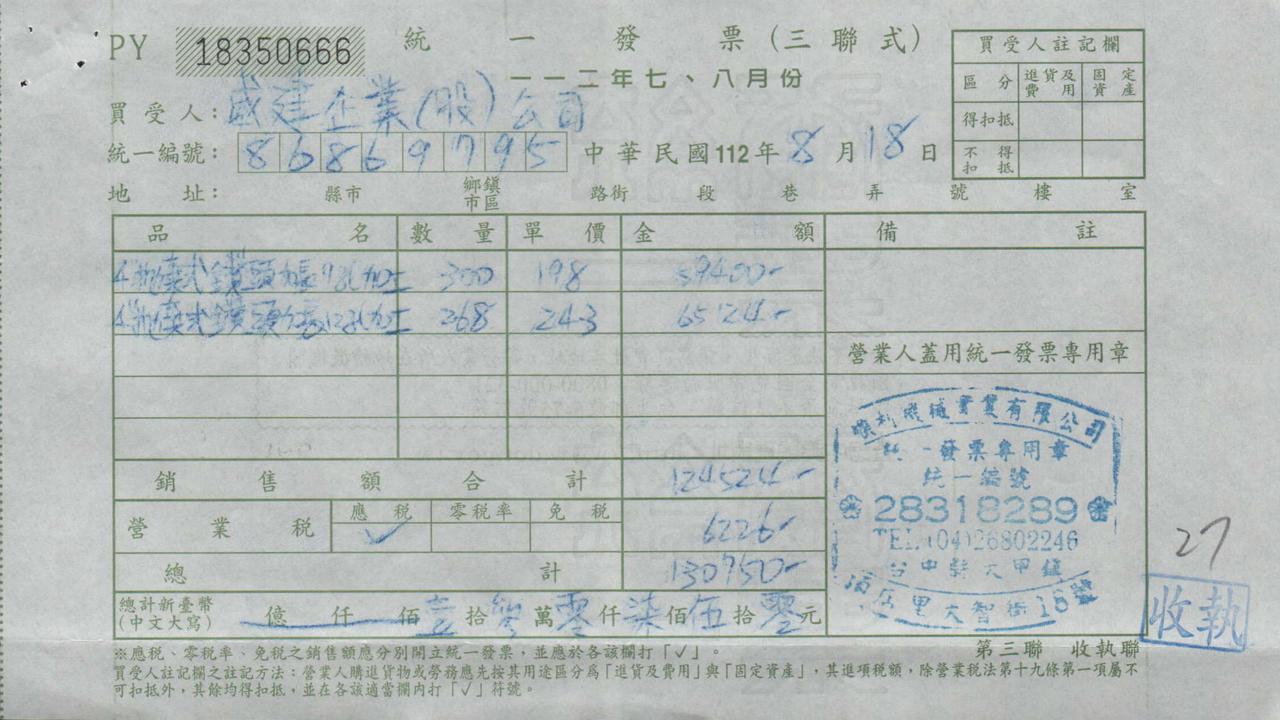 PY 18350666 統一發票(三聯式)
一一二年七、八月份
買受人: 盛建企業(股)公司
統一編號: 86869795 中華民國112年8月18日
地址: 縣市 鄉鎮市區 路街 段 巷 弄 號 樓 室
買受人註記欄
區分 進貨及費用 固定資產
得扣抵
不得扣抵
品名 數量 單價 金額 備註
鑽頭加長 加工 300 198 59400-
鑽頭 加工 268 243 65124-
營業人蓋用統一發票專用章
銷售額合計 124524-
營業稅 應稅 零稅率 免稅 6226-
✓
總計 130750-
總計新臺幣(中文大寫) 億仟佰壹拾 萬零仟柒佰伍拾零元
機械實業有限公司
統一發票專用章
統一編號
28318289
TEL:(04)26802246
台中縣大甲鎮
大智街16號
27
收執
※應稅、零稅率、免稅之銷售額應分別開立統一發票,並應於各該欄打「✓」。
第三聯 收執聯
買受人註記欄之註記方法:營業人購進貨物或勞務應先按其用途區分為「進貨及費用」與「固定資產」,其進項稅額,除營業稅法第十九條第一項屬不
可扣抵外,其餘均得扣抵,並在各該適當欄內打「✓」符號。